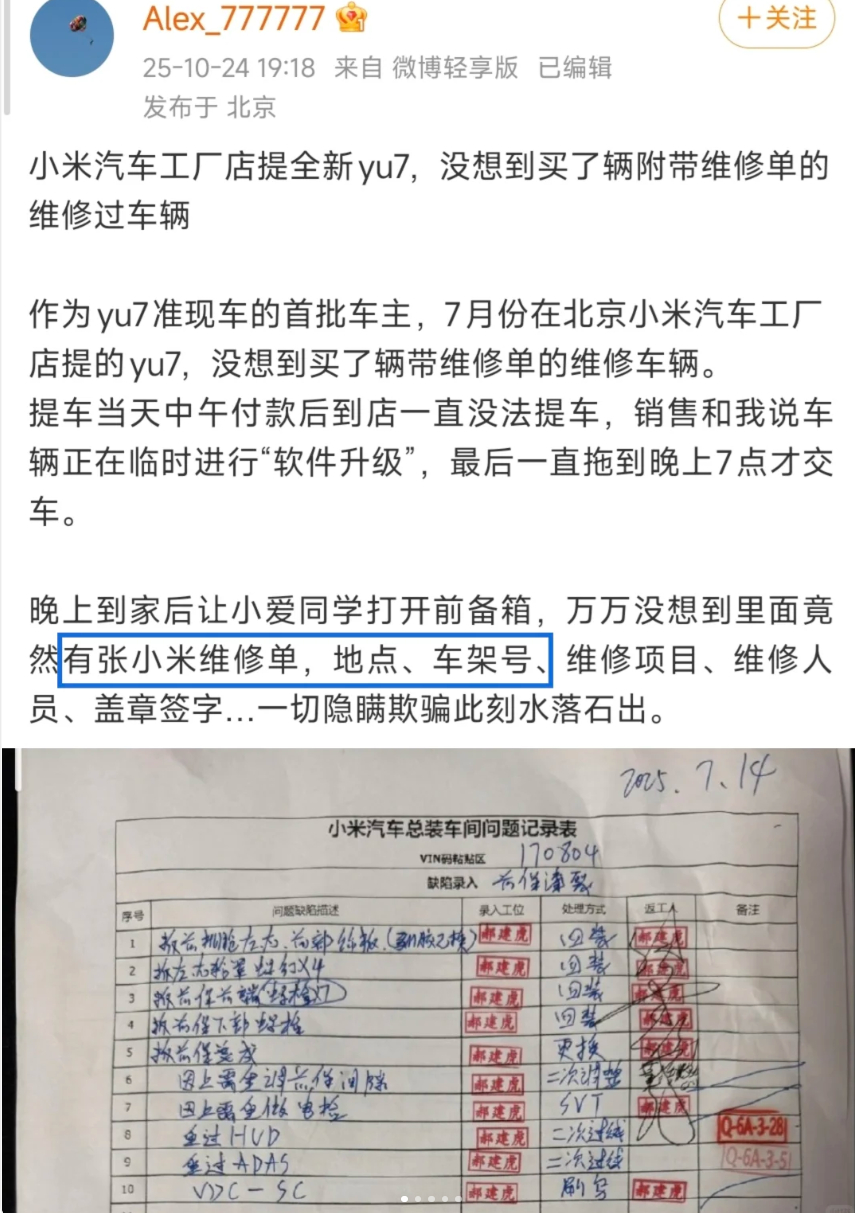 Alex_777777
+关注
25-10-24 19:18 来自 微博轻享版 已编辑
发布于 北京
小米汽车工厂店提全新yu7，没想到买了辆附带维修单的
维修过车辆
作为yu7准现车的首批车主，7月份在北京小米汽车工厂
店提的yu7，没想到买了辆带维修单的维修车辆。
提车当天中午付款后到店一直没法提车，销售和我说车
辆正在临时进行“软件升级”，最后一直拖到晚上7点才交
车。
晚上到家后让小爱同学打开前备箱，万万没想到里面竟
然有张小米维修单，地点、车架号、维修项目、维修人
员、盖章签字...一切隐瞒欺骗此刻水落石出。
2025.7.14
小米汽车总装车间问题记录表
VIN码粘贴区 170804
缺陷录入 前保
序号 问题缺陷描述 录入工位 处理方式 返工人 备注
1 郝建虎 回装 郝建虎
2 郝建虎 回装 郝建虎
3 郝建虎 回装 郝建虎
4 拆前保下部 郝建虎 回装 郝建虎
5 拆前保总成 郝建虎 更换 郝建虎
6 因上需重调前保间隙 郝建虎 二次调整
7 因上需重做电检 郝建虎 SVT 郝建虎
8 重过HUD 郝建虎 二次过线 Q-6A-3-28
9 重过ADAS 郝建虎 二次过线 Q-6A-3-5
10 VDC-SC 郝建虎 刷写 郝建虎